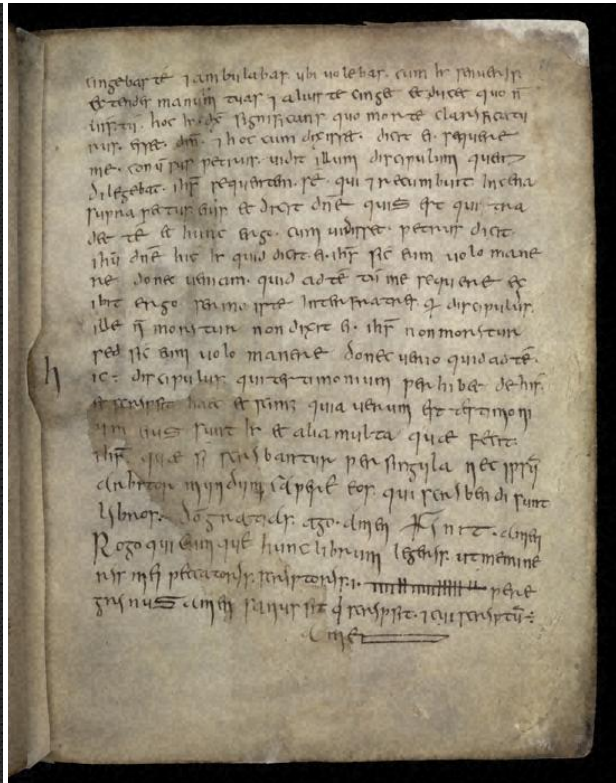 cingebas té ⁊ ambulabas ubi uolebas cum hr̄ senueris
extendes manum tuas ⁊ alius te cinget et ducet quo ñ
uis tú. hoc hr̄ dx̄ significans quo morte clarificatu
rus esset dm̄. ⁊ hoc cum dixisset. dicit ei sequere
me. conuersus petrus. uidit illum discipulum quem
dilegebat. ihs̄ sequentem. sé. qui ⁊ recumbuit in cena
supra pectus eius et dicit dn̄e quis est qui tra
det té et hunc ergo. cum uidisset. petrus dicit.
ihū dn̄e hic hr̄ quid dicit. ei. ihs̄ sic eum uolo mane
re donec ueniam. quid ad té tú me sequere ex
ibit ergo sermo iste inter fratres qđ discipulus.
ille ñ moritur non dixit ei. ihs̄ non moritur
sed sic eum uolo manere donec uenio quid ad té.
ic÷ discipulus qui testimonium perhibet de ihū.
et scripsit haec et scimus quia uerum est testimoni
um eius sunt hr̄ et alia multa quae fecit.
ihs̄ quae si scribantur per singula nec ipsum
arbitor mundum capere eos. qui scribendi sunt
libros. do gratias ago. amen finit. amen
Rogo quicumque hunc librum legeris ut memine
ris mei peccatoris scriptoris .i. pere
grinus. amen sanus sit qi scripsit. ⁊ cui scriptū÷:
Amen